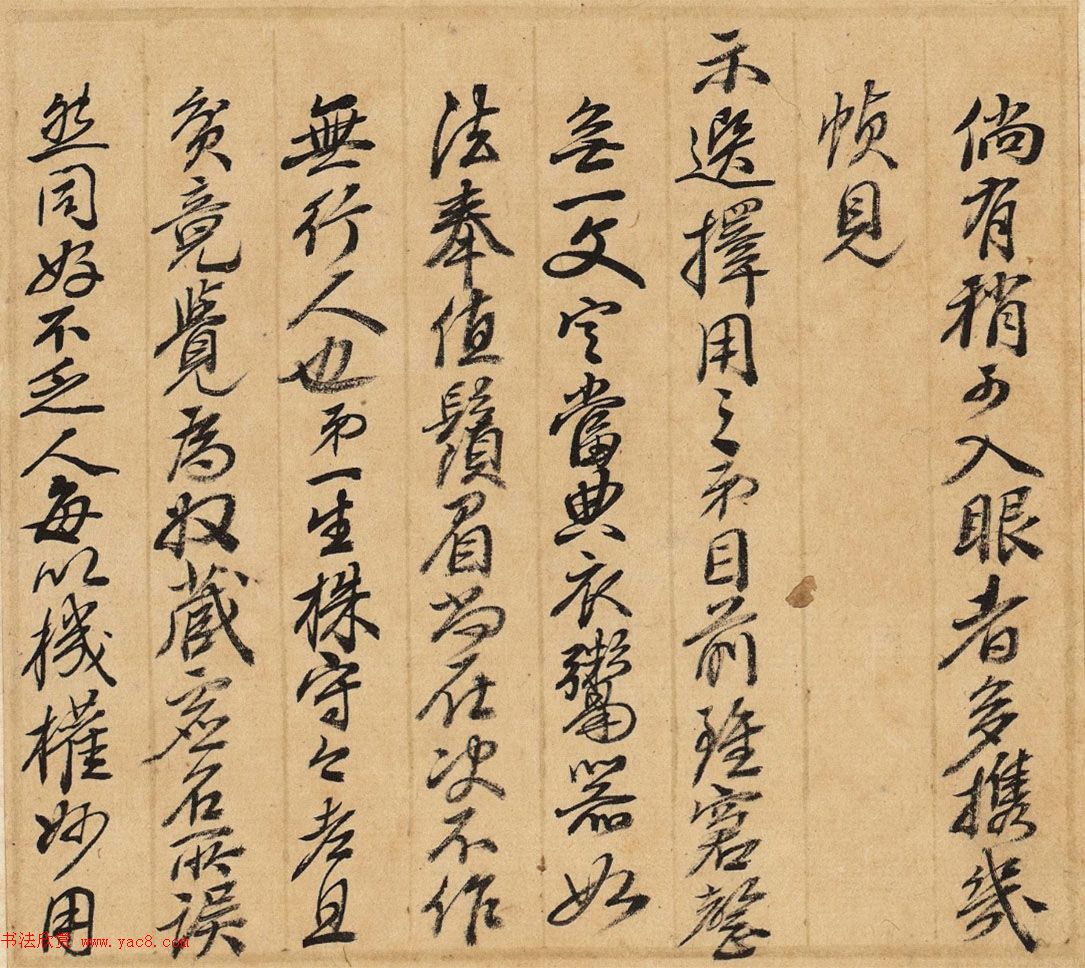 倘有稍可入眼者多攜幾
幀見
示選擇用之弟目前雖窘罄
無一文定當典衣鬻器如
法奉值鬚眉尚在決不作
無行人也弟一生株守今老且
貧竟覺為收藏虛名所誤
然同好不乏人每以機權妙用
书法欣赏 www.yac8.com